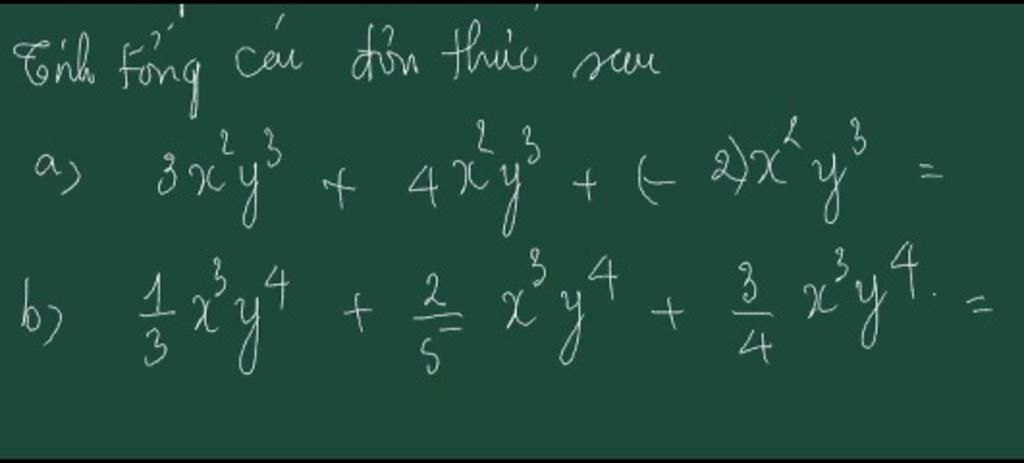 Tính tổng các đơn thức sau
a) 3x²y³ + 4x²y³ + (-2)x²y³ =
b) 1/3 x³y⁴ + 2/5 x³y⁴ + 3/4 x³y⁴. =